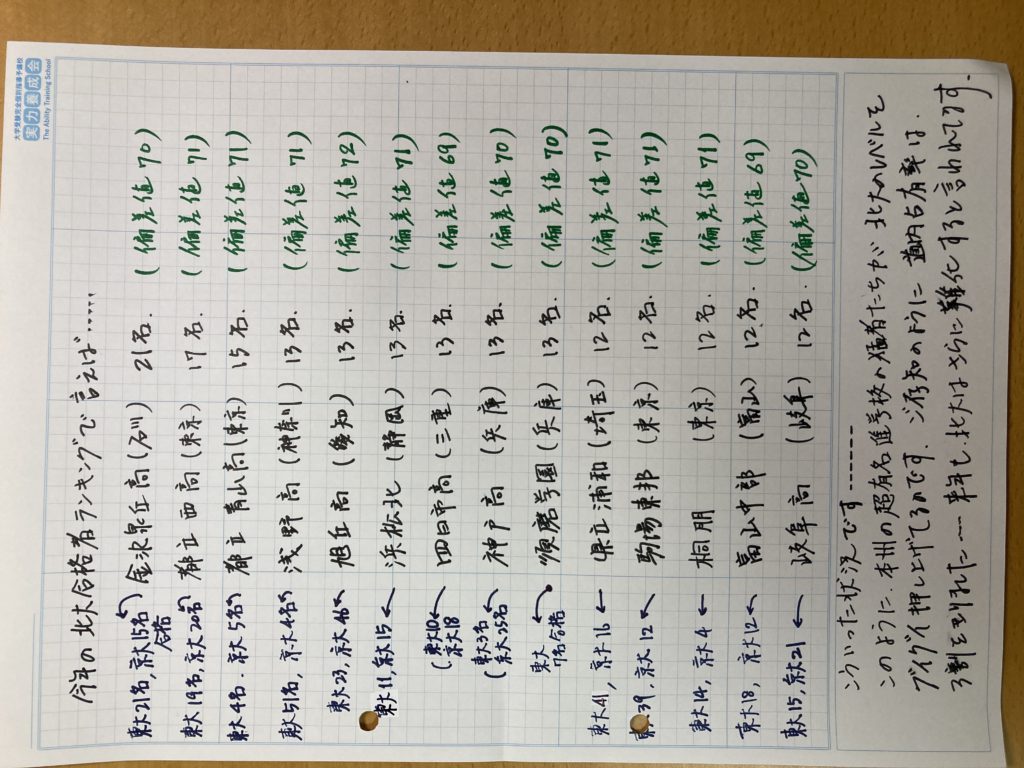 大学受験完全個別指導予備校
実力養成会
The Ability Training School
今年の北大合格者ランキングで言えば……
東大21名、京大15名合格 金沢泉丘高(石川) 21名.(偏差値70)
東大19名、京大20名 都立西高(東京) 17名.(偏差値71)
東大4名.京大5名 都立青山高(東京) 15名.(偏差値71)
東大51名、京大4名 浅野高(神奈川) 13名.(偏差値71)
東大23、京大46 旭丘高(愛知) 13名.(偏差値72)
東大11、京大15 浜松北(静岡) 13名.(偏差値71)
(東大10 京大18 四日市高(三重) 13名(偏差値69)
(東大3名 京大25名 神戸高(兵庫) 13名(偏差値70)
東大7名合格 須磨学園(兵庫) 13名.(偏差値70)
東大41、京大16 県立浦和(埼玉) 12名.(偏差値71)
東大39、京大12 駒場東邦(東京) 12名.(偏差値71)
東大14、京大4 桐朋(東京) 12名.(偏差値71)
東大18、京大12 富山中部(富山) 12名.(偏差値69)
東大15、京大21 岐阜高(岐阜) 12名(偏差値70)
こういった状況です--------
このように、本州の超有名進学校の猛者たちが北大のレベルを
グイグイ押し上げてるのです.ご存知のように道内占有率は、
3割を切れた---- 来年も北大はさらに難化すると言われてます.